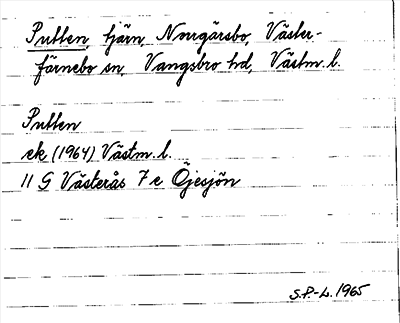 Putten, tjärn, Norrgärsbo, Väster-
färnebo sn, Vangsbro hd, Västm. l.
Putten
ek (1964) Västm. l.
11 G Västerås 7 e Öjesjön
S.P.-L. 1965